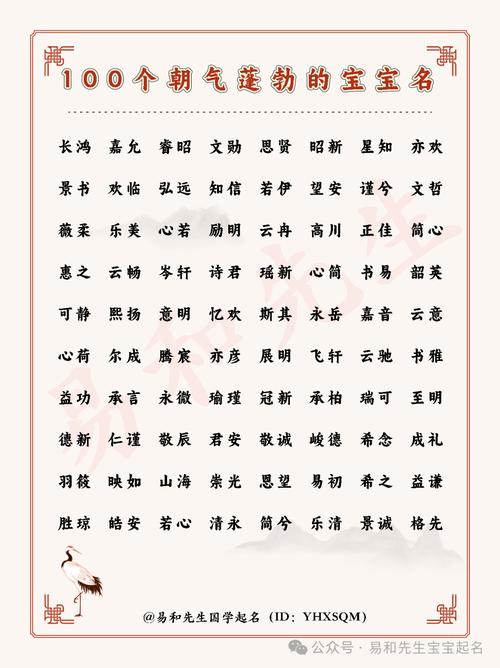 100个朝气蓬勃的宝宝名
长鸿 嘉允 睿昭 文勋 思贤 昭新 星知 亦欢
景书 欢临 弘远 知信 若伊 望安 谨兮 文哲
薇柔 乐美 心若 励明 云冉 高川 正佳 简心
惠之 云畅 岑轩 诗君 瑶新 心简 书易 韶英
可静 熙扬 意明 忆欢 斯其 永岳 嘉音 云意
心荷 尔成 腾宸 亦彦 展明 飞轩 云驰 书雅
益功 承言 永微 瑜瑾 冠新 承柏 瑞可 至明
德新 仁谨 敬辰 君安 敬诚 峻德 希念 成礼
羽筱 映如 山海 崇光 思望 易初 希之 益谦
胜琼 皓安 若心 清永 简兮 乐清 景诚 格先
易和先生
@易和先生国学起名（ID：YHXSQM）
公众号 · 易和先生宝宝起名